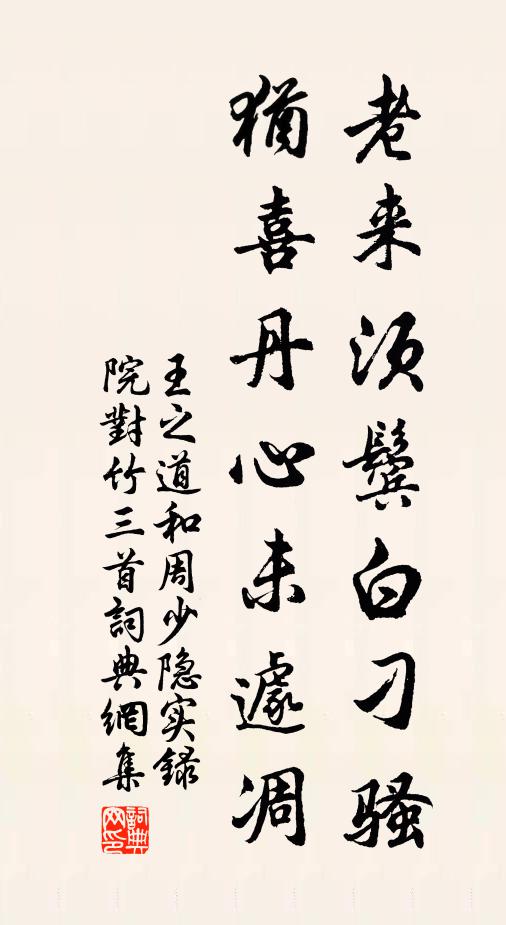 老来须鬓白刁骚
猶喜丹心未遽凋
王之道和周少隐实録
院對竹三首詞典網集
詞典网印